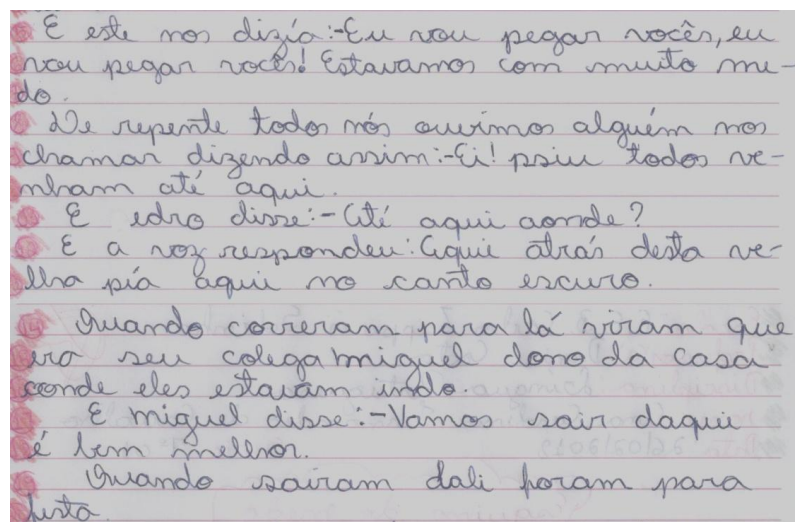 E este nos dizía:-Eu vou pegar vocês, eu
vou pegar vocês! Estavamos com muito me-
do.
De repente todos nós ouvimos alguém nos
chamar dizendo assim:-Ei! psiu todos ve-
nham até aqui.
E edro disse:-Até aqui aonde?
E a voz respondeu: Aqui atrás desta ve-
lha pía aqui no canto escuro.
Quando correram para lá viram que
era seu colega miguel dono da casa
aonde eles estavam indo.
E miguel disse:-Vamos sair daqui
é bem melhor.
Quando saíram dali foram para
festa.